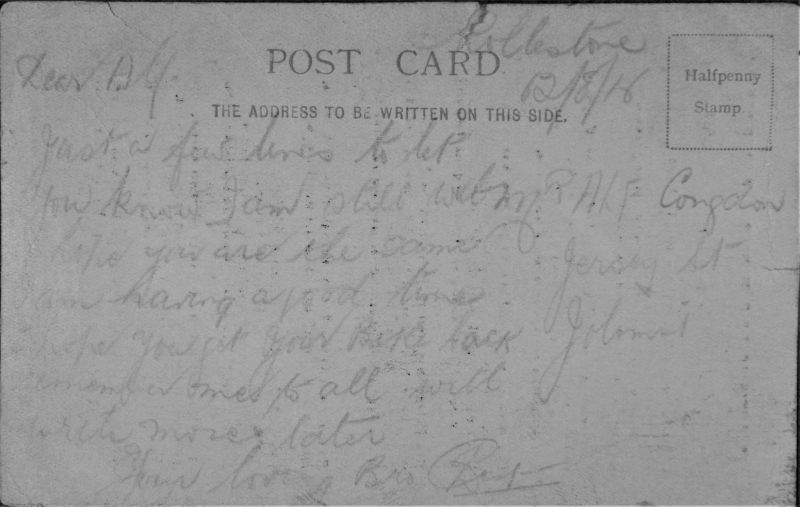 Rollestone
12/8/16
POST CARD
THE ADDRESS TO BE WRITTEN ON THIS SIDE.
Halfpenny
Stamp.
Dear Alf
Just a few lines to let
you know I am still well
hope you are the same
am having a good time
hope you get your Bike back
remember me to all will
write more later
Your loving Bro
Mr Alf Congdon
Jersey St
Jolimont